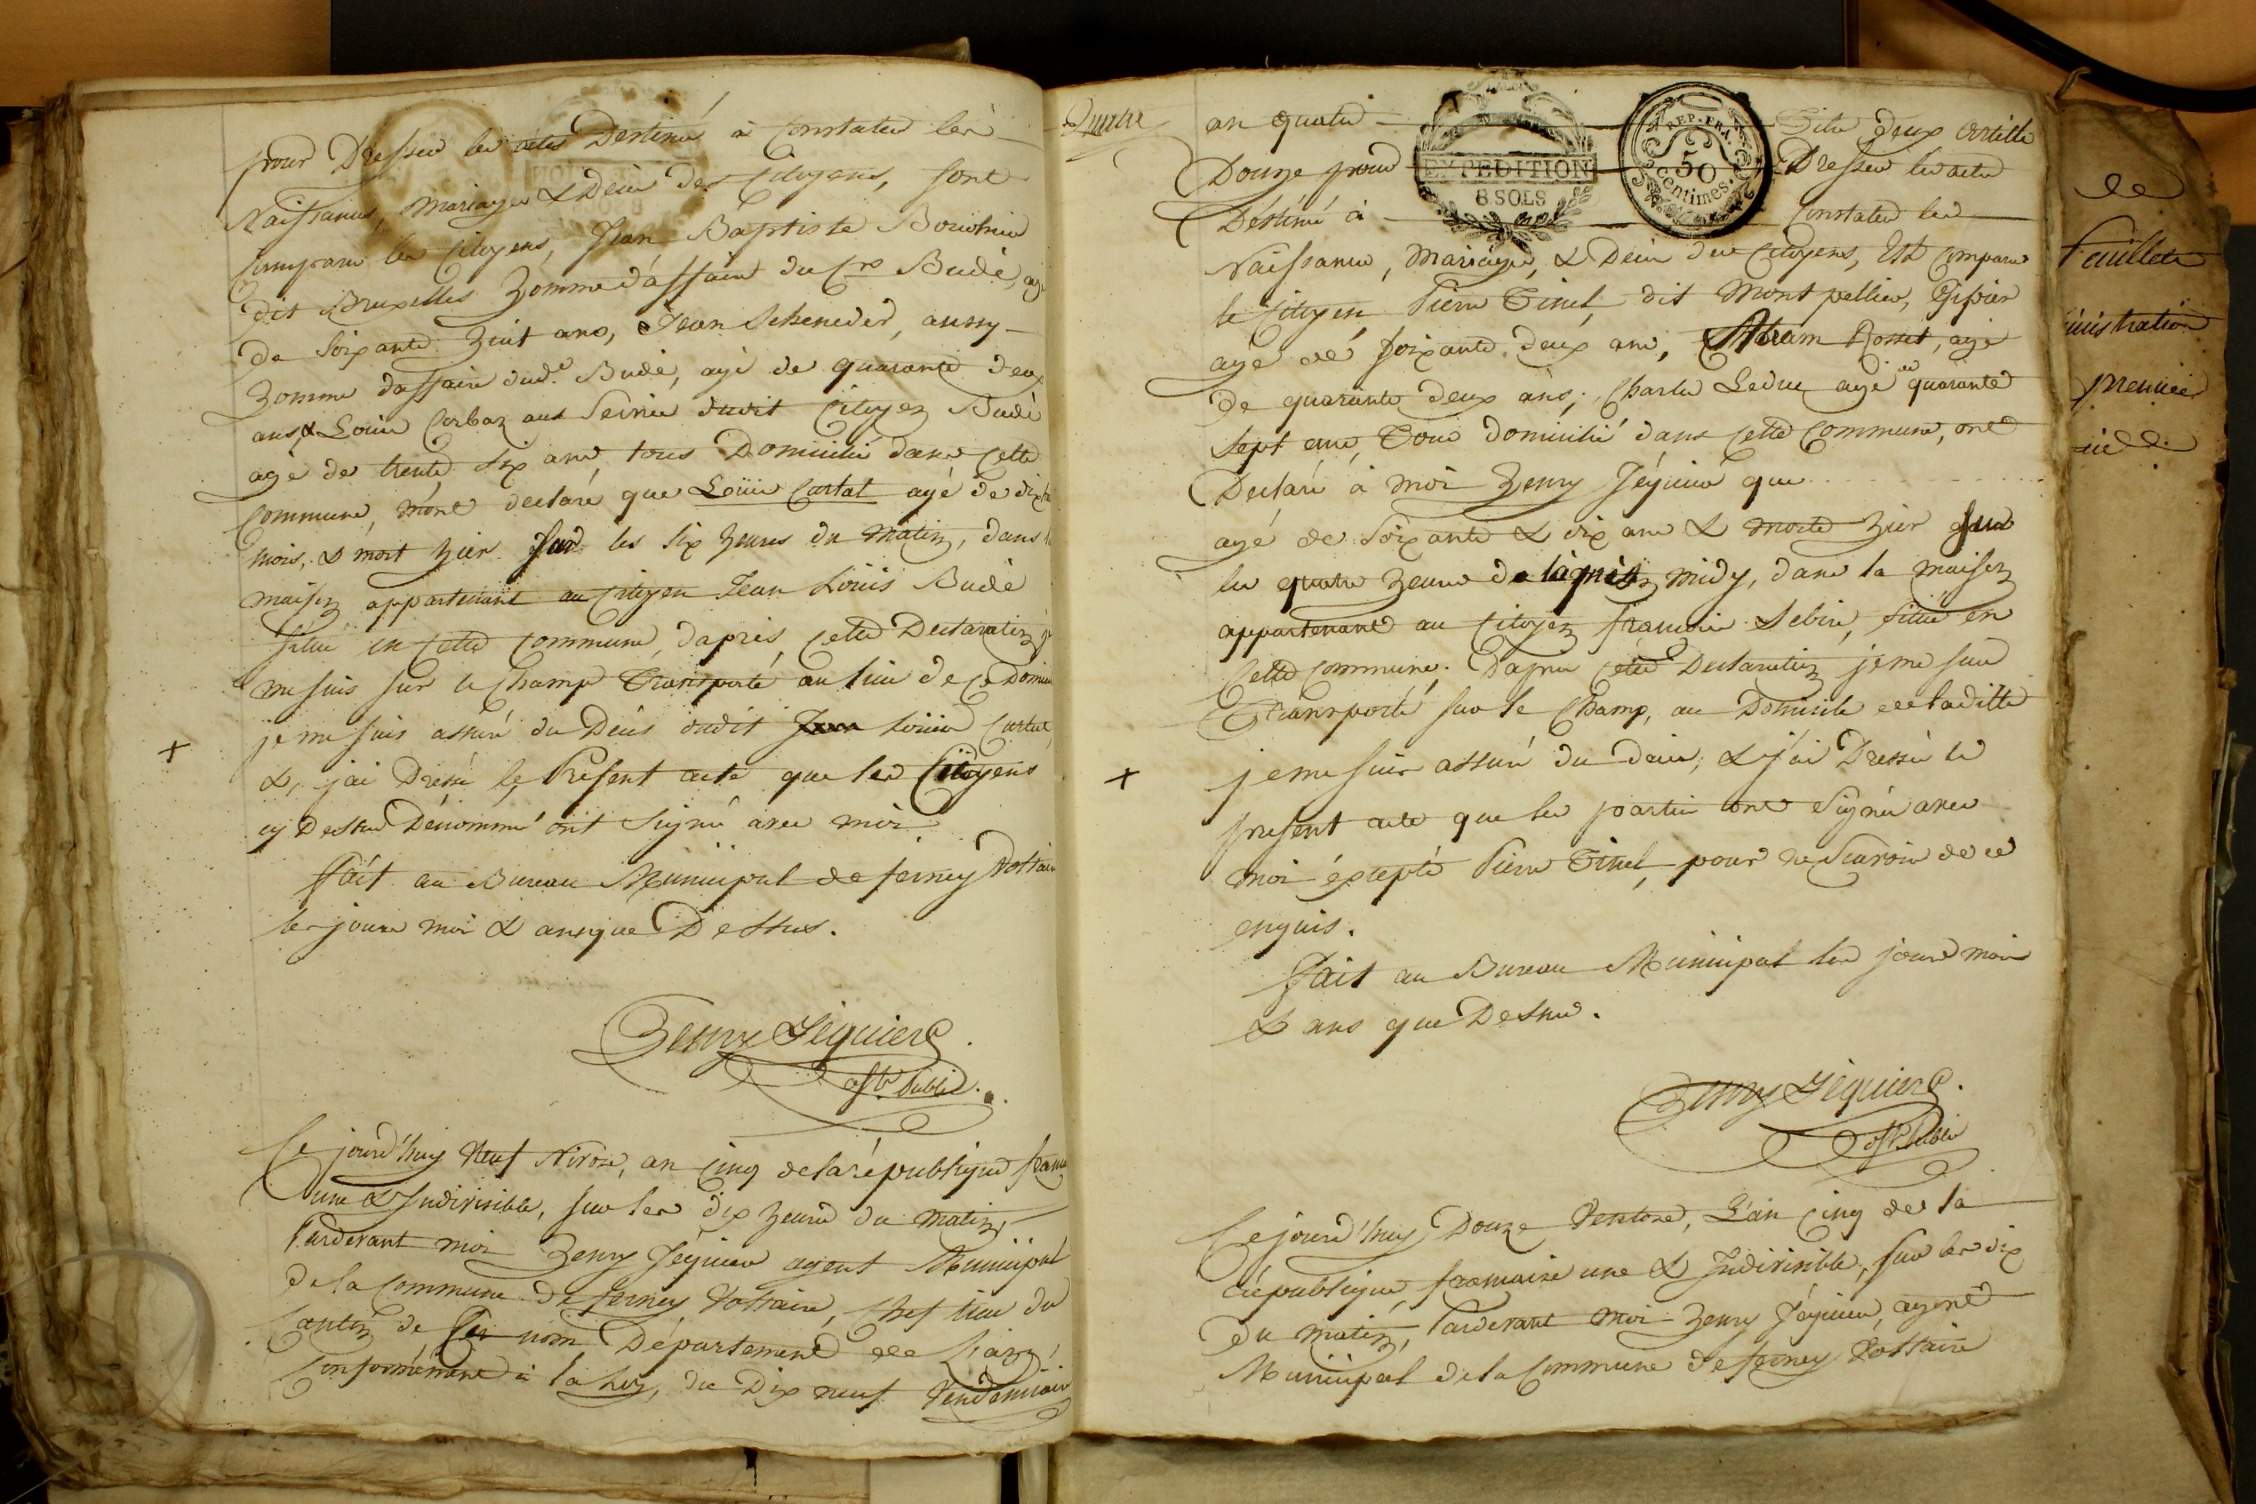 pour Dresser les actes Destiné à Constater les
Naissances, Mariages & Deces des Citoyens, sont
Comparu les Citoyens, Jean Baptiste
dit Bruxelles homme d'affaire du Cen Budé, agé
de soixante huit ans, Jean Scheneder, aussy
homme d'affaire dudt Budé, agé de quarante deux
ans & Louis Corbaz aus Service dudit Citoyen Budé
agé de trente six ans, tous Domicilié dans cette
Commune, m'ont declaré que Louis Cartal agé de
mois, & mort hier sur les six heures du matin, dans la
maison appartenant au Citoyen Jean Louis Budé
situé en cette Commune, d'après cette Declaration je
me suis sur le Champ Transporté au lieu de ce Domicile
je me suis assuré du Décès dudit Jean Louis Cartal,
&, j'ai Dressé le Présent acte que les Citoyens
cy Dessus Dénommé ont Signé avec moi
fait au Bureau Municipal de ferney Voltaire
les jours moi & ans que Dessus.
Henry Séguier
offr Public.
Ce jourd'huy Neuf Nivose, an Cinq de la république
une & Indivisible, sur les dix heures du matin,
Pardevant moi Henry Séguier agent Municipal
de la Commune de ferney Voltaire, Chef lieu du
Canton de Ce nom Département de l'ain,
Conformément à la Loy, du Dix neuf Vendémiaire
Quatre
an quatre Titre deux Article
Douze pour Dresser les actes
Déstiné à Constater les
EXPEDITION
8 SOLS
REP. FRA.
50
centimes.
Naissances, Mariages, & Deces des Citoyens, Est Comparu
le Citoyen Pierre Tinel dit Montpellier,
agé de soixante deux ans, Abram Rosset, agé
de quarante deux ans, Charles Leduc agé de quarante
sept ans, Tous domicilié dans cette Commune, ont
Declaré à moi Henry Séguier que
agé de Soixante & dix ans & morte hier sur
les quatre heures de l'après midy, dans la maison
appartenant au Citoyen francois, situé en
Cette Commune. D'après cette Declaration je me suis
Transporté sur le Champ, au Domicile de laditte
je me suis assuré du décès, & j'ai Dressé le
present acte que les parties ont Signé avec
moi éxcepté Pierre Tinel, pour ne scavoir de ce
enquis.
fait au Bureau Municipal les jours mois
& ans que Dessus.
Henry Séguier.
offr Public
Ce jourd'huy Douze Ventose, L'an Cinq de la
république francaise une & Indivisible, sur les dix
du matin, Pardevant moi Henry Séguier, agent
Municipal de la Commune de ferney Voltaire
feuillets
premier